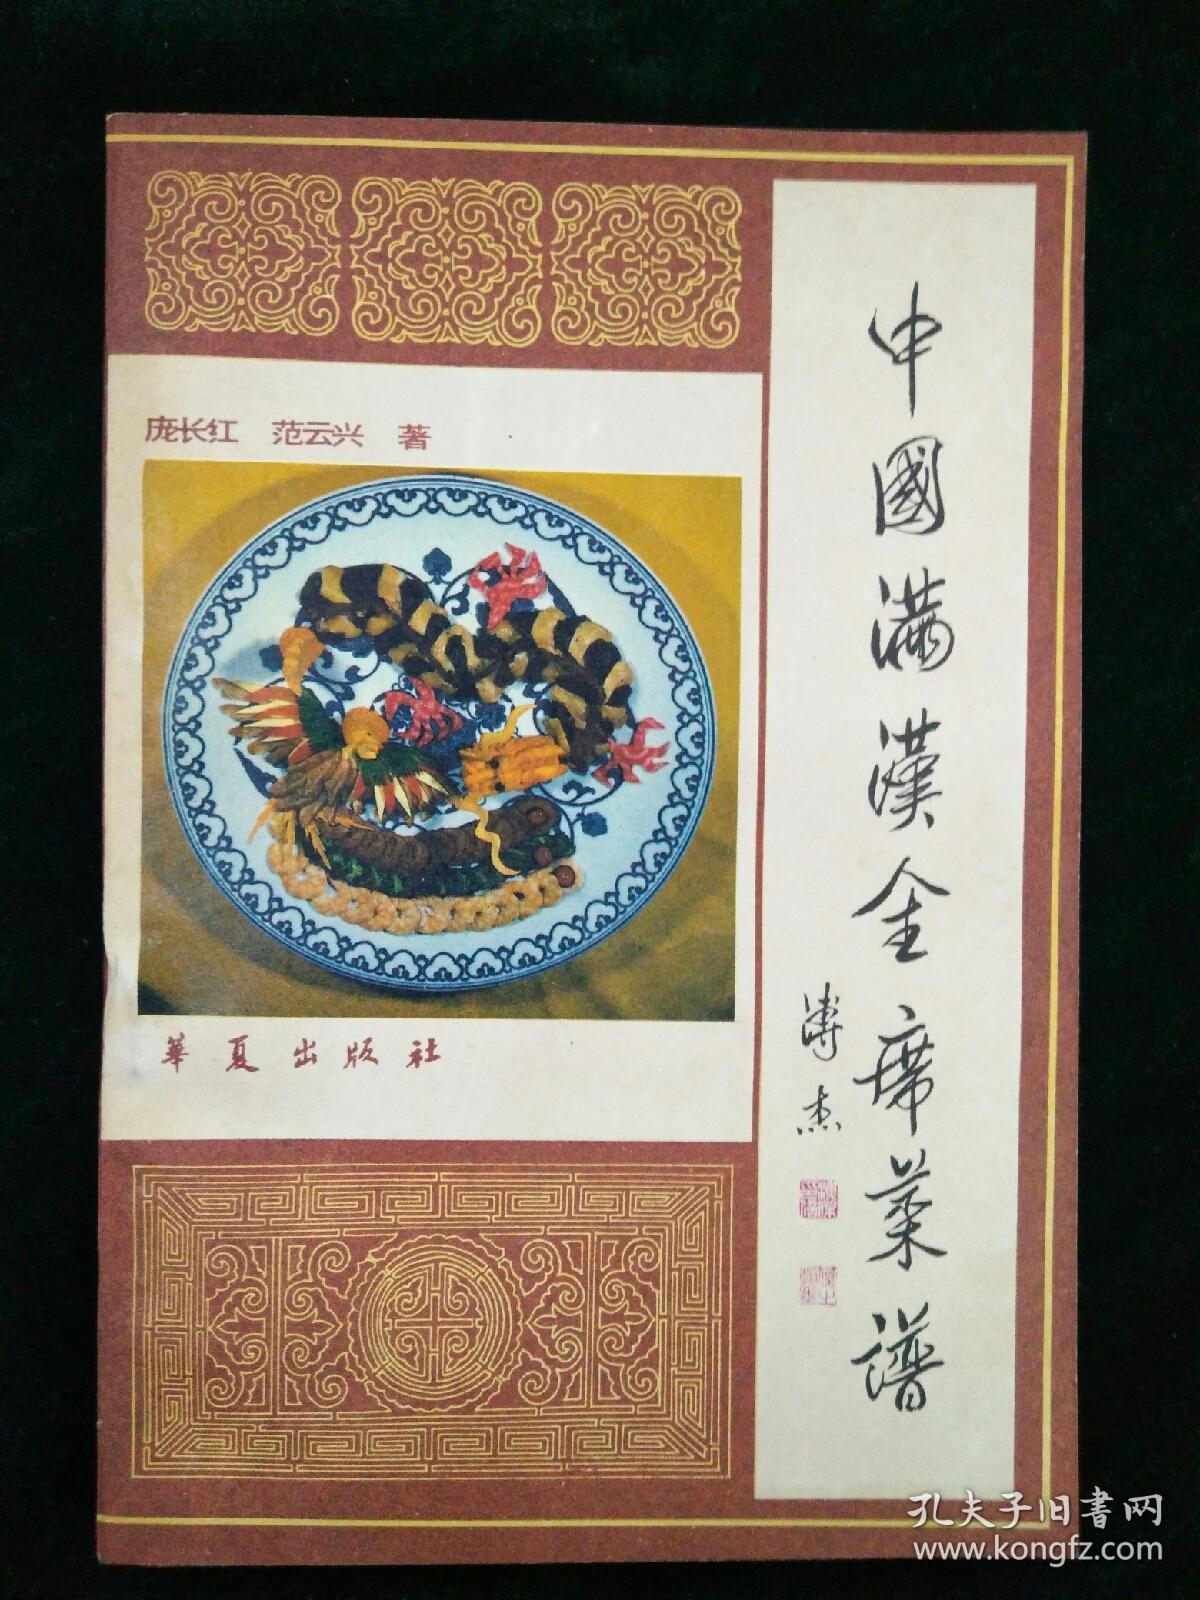 中國满漢全席菜谱
溥杰
庞长红 范云兴 著
華夏出版社
孔夫子旧書网
www.kongfz.com